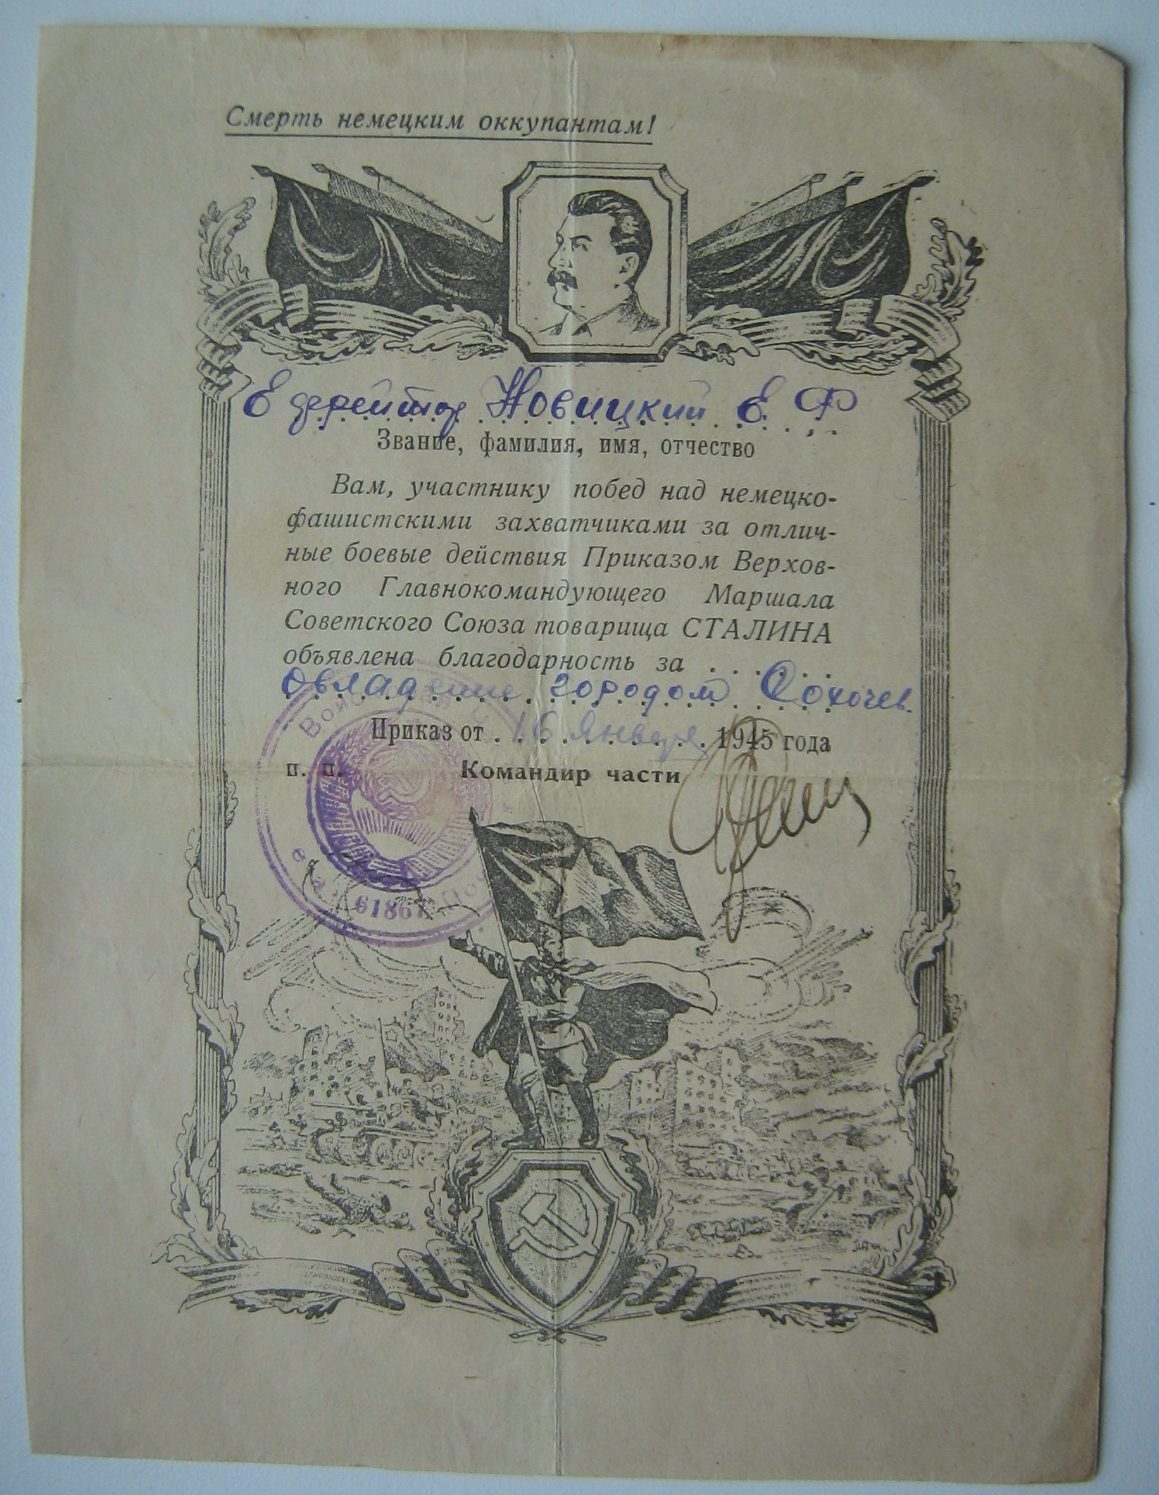 Смерть немецким оккупантам!
Ефрейтор Новицкий Е. Ф.
Звание, фамилия, имя, отчество
Вам, участнику побед над немецко-
фашистскими захватчиками за отлич-
ные боевые действия Приказом Верхов-
ного Главнокомандующего Маршала
Советского Союза товарища СТАЛИНА
объявлена благодарность за . . . . .
Овладение городом Сохочев.
Приказ от 16 Января 1945 года
п. п. Командир части
61867